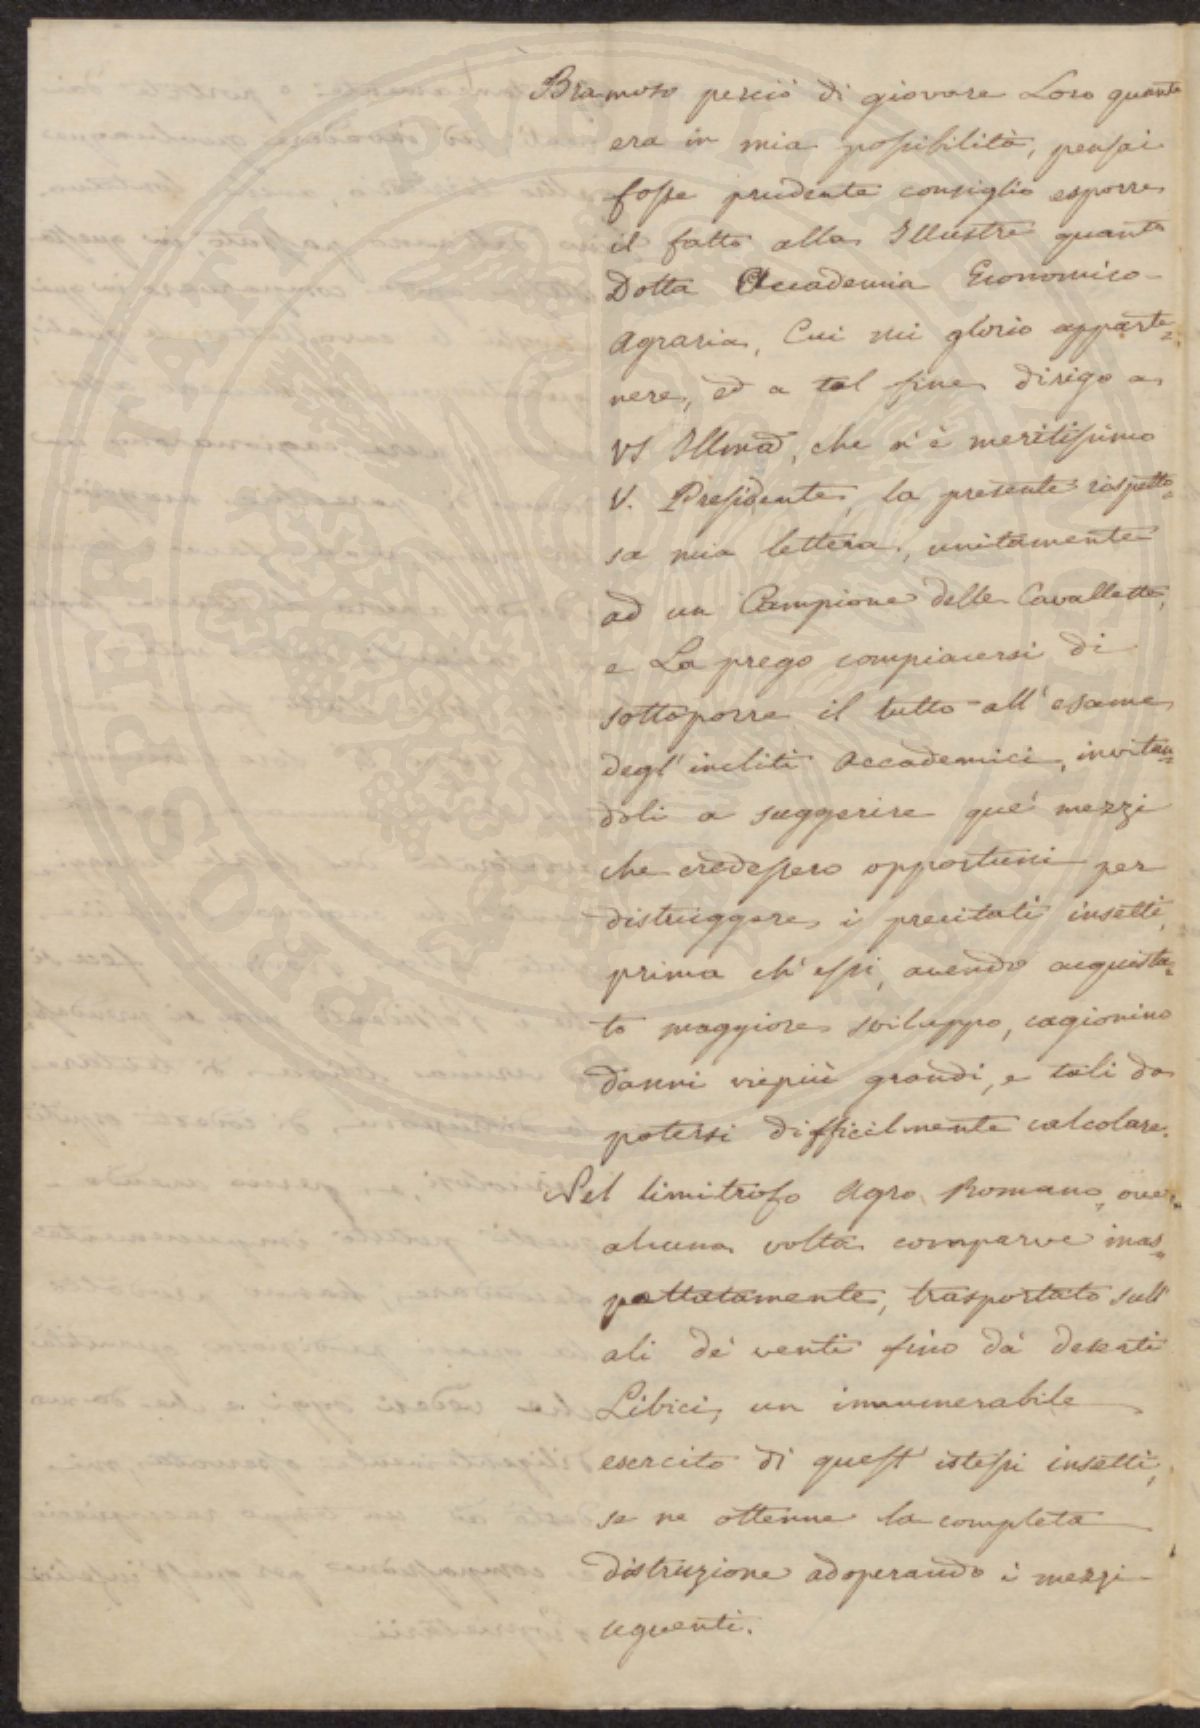 Bramoso perciò di giovare Loro quanto
era in mia possibilità, pensai
fosse prudente consiglio esporre
il fatto alla Illustre quanto
Dotta Accademia Economico-
Agraria, Cui mi glorio apparte=
nere, ed a tal fine dirigo a
VS Illma, che n'è meritissimo
V. Presidente, la presente rispetto=
sa mia lettera, unitamente
ad un Campione delle Cavallette,
e La prego compiacersi di
sottoporre il tutto all'esame
degl'incliti Accademici, invitan=
doli a suggerire que' mezzi
che credessero opportuni per
distruggere i precitati insetti,
prima ch'essi, avendo acquista=
to maggiore sviluppo, cagionino
danni viepiù grandi, e tali da
potersi difficilmente calcolare.
Nel limitrofo Agro Romano, ove
alcuna volta comparve inas=
pettatamente, trasportato sull'
ali de' venti fino da' deserti
Libici, un innumerabile
esercito di quest'istessi insetti,
se ne ottenne la completa
distruzione adoperando i mezzi
seguenti.
PROSPERITATI PUBLICAE AUGENDAE